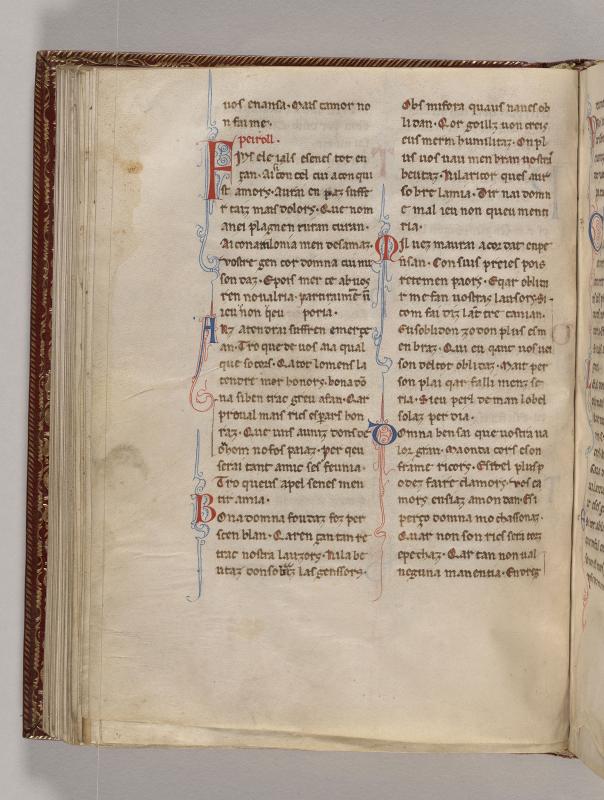 uos enansa. Mais tamor no
n fai me.
peiroll.
Fins e leials e senes tot en
gan. Aicon cel cui a conqui
st amors. Aurai en paz suffe
r taiz mais dolors. Que nom
anei plagnen ruran
Ai con ma mor desamaz.
vostre gen cor domna cui nu
son daz. E pois merce ab uos
ren no ualria.
ieu non q̄eu poria.
Anz atendrai suffren emerce
an. Tro que de uos aia qual
que socors. Qator lomens la
tendre mor honors. bona dō
na si ben trac greu afan. Qar
proual mais rics espars hon
raz. Que uns auinz dons de
bom no fos paiaz. per qeu
serai tant amic ses feunia.
Tro queus apel senes men
tir amia.
Bona domna
scen blan. Q aren can tan re
trac uostra lauzors. Ni la be
utaz don sobraz las genssors.
Obs mi fora quaus nanes ob
li dan. Cor goillz uon creis
eus merm humilitaz. On pl
us uos uau men bran uostra
beutaz. Ni la ricor ques aut
sobre lamia. Dir nai domn
e mal ieu non queu menti
ria.
Mil uez maurai acor dat en pe
n̄san. Con suis preies pois
retemen paors. E qar oblidi
r me fan uostras lausors. Si
com fai diz lair tre caman.
Eu soblidon zo don plus es m
en braz. Qui eu qant uos uei
son del tot oblidaz. Mait per
son plai qar falli menz se
ria. Sieu perl deman lobel
solaz per dia.
Domna ben sai que uostra ua
lor gran. Maonda cors e son
frame ricors. E si bel plus p
odez faire clamors. uos ca
mors en siaz amon dan. Esi
perzo domna mo chassonaz.
Quar non son rics seri toz
epechaz. Qar tan non ual
neguna manentia. En dreg